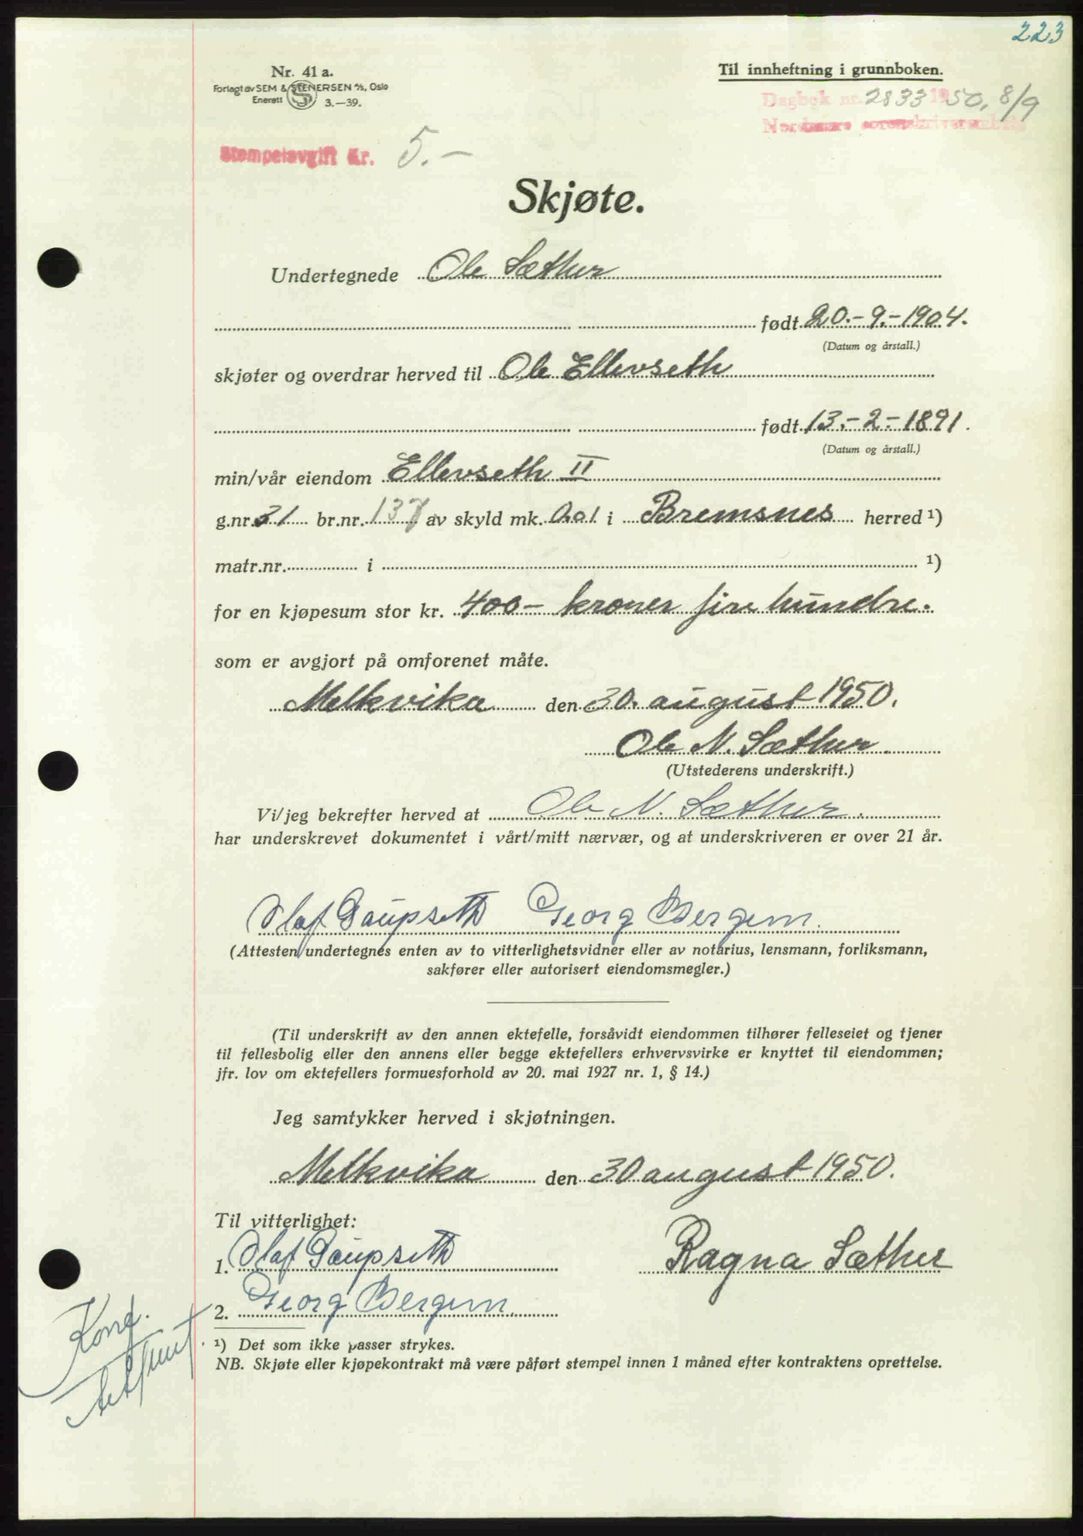 223
Nr. 41 a.
Forlagt av SEM & STENERSEN A/S, Oslo
Enerett S 3.—39.
Til innheftning i grunnboken.
Dagbok nr. 2833 1950, 8/9
Nordmøre sorenskriverembete
Stempelavgift Kr. 5.-
Skjøte.
Undertegnede Ole Sæther
født 20.-9.-1904.
(Datum og årstall.)
skjøter og overdrar herved til Ole Ellevseth
født 13.-2.-1891.
(Datum og årstall.)
min/vår eiendom Ellevseth II
g.nr. 31 br.nr. 137 av skyld mk. 0.01 i Bremsnes herred ¹)
matr.nr. i ¹)
for en kjøpesum stor kr. 400- kroner fire hundre.
som er avgjort på omforenet måte.
Melkvika den 30. august 1950.
Ole N. Sæther.
(Utstederens underskrift.)
Vi/jeg bekrefter herved at Ole N. Sæther.
har underskrevet dokumentet i vårt/mitt nærvær, og at underskriveren er over 21 år.
Olaf Gaupseth Georg Bergem.
(Attesten undertegnes enten av to vitterlighetsvidner eller av notarius, lensmann, forliksmann,
sakfører eller autorisert eiendomsmegler.)
(Til underskrift av den annen ektefelle, forsåvidt eiendommen tilhører felleseiet og tjener
til fellesbolig eller den annens eller begge ektefellers erhvervsvirke er knyttet til eiendommen;
jfr. lov om ektefellers formuesforhold av 20. mai 1927 nr. 1, § 14.)
Jeg samtykker herved i skjøtningen.
Melkvika den 30 august 1950.
Til vitterlighet:
1. Olaf Gaupseth
Ragna Sæther
2. Georg Bergem.
Konf.
¹) Det som ikke passer strykes.
NB. Skjøte eller kjøpekontrakt må være påført stempel innen 1 måned efter kontraktens oprettelse.